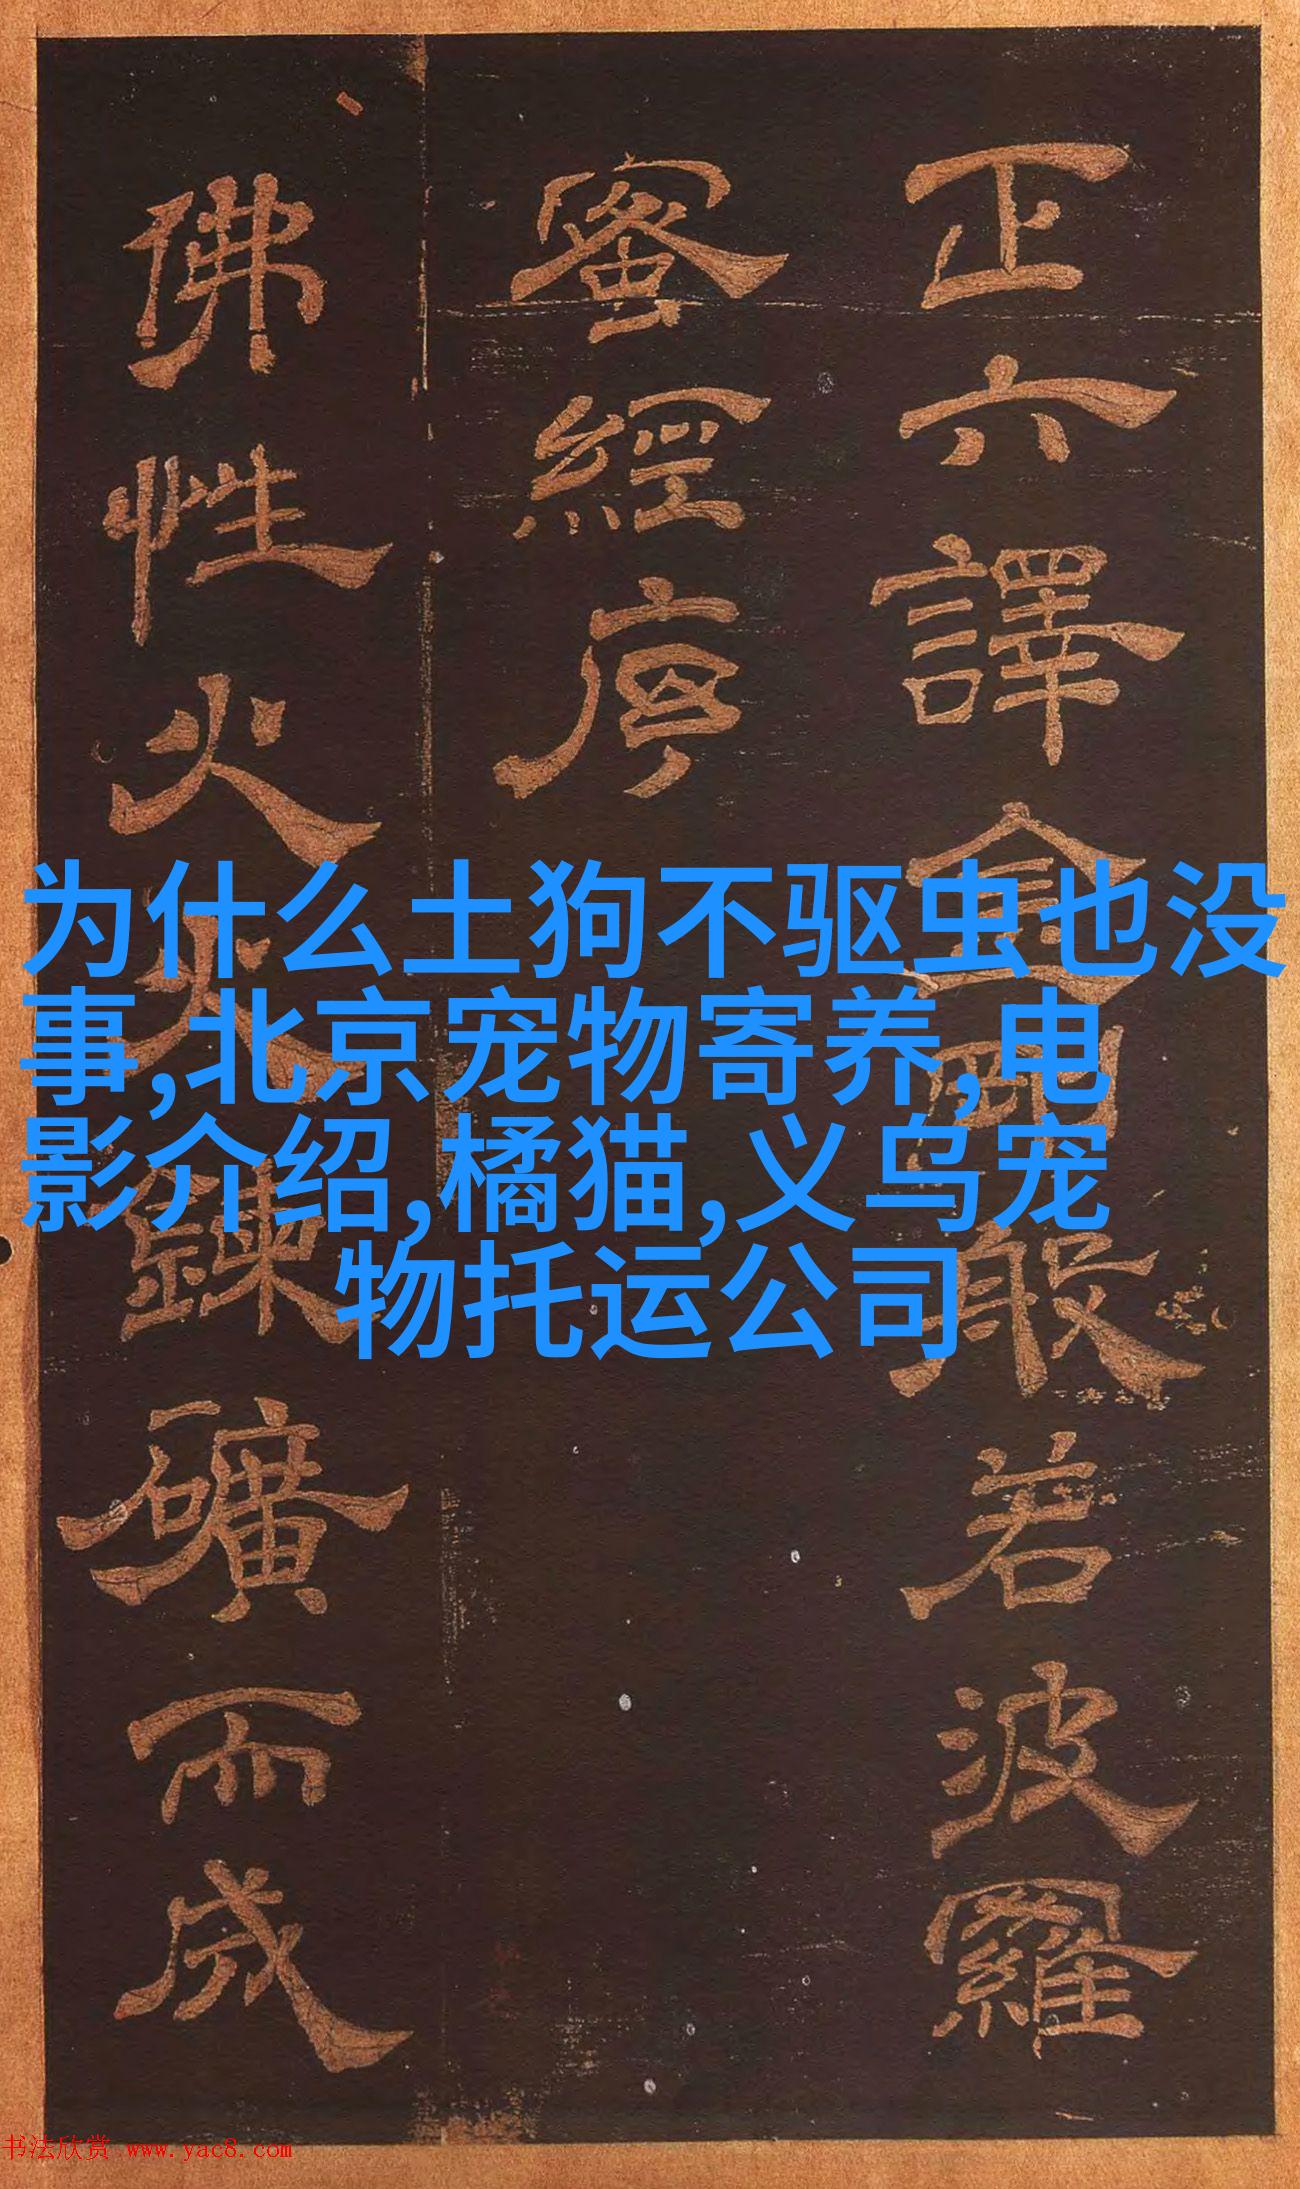 正六譯金剛般若波羅
蜜經序
佛性火炎鍊礦而成
为什么土狗不驱虫也没
事,北京宠物寄养,电
影介绍,橘猫,义乌宠
物托运公司
书法欣赏 www.yac8.com